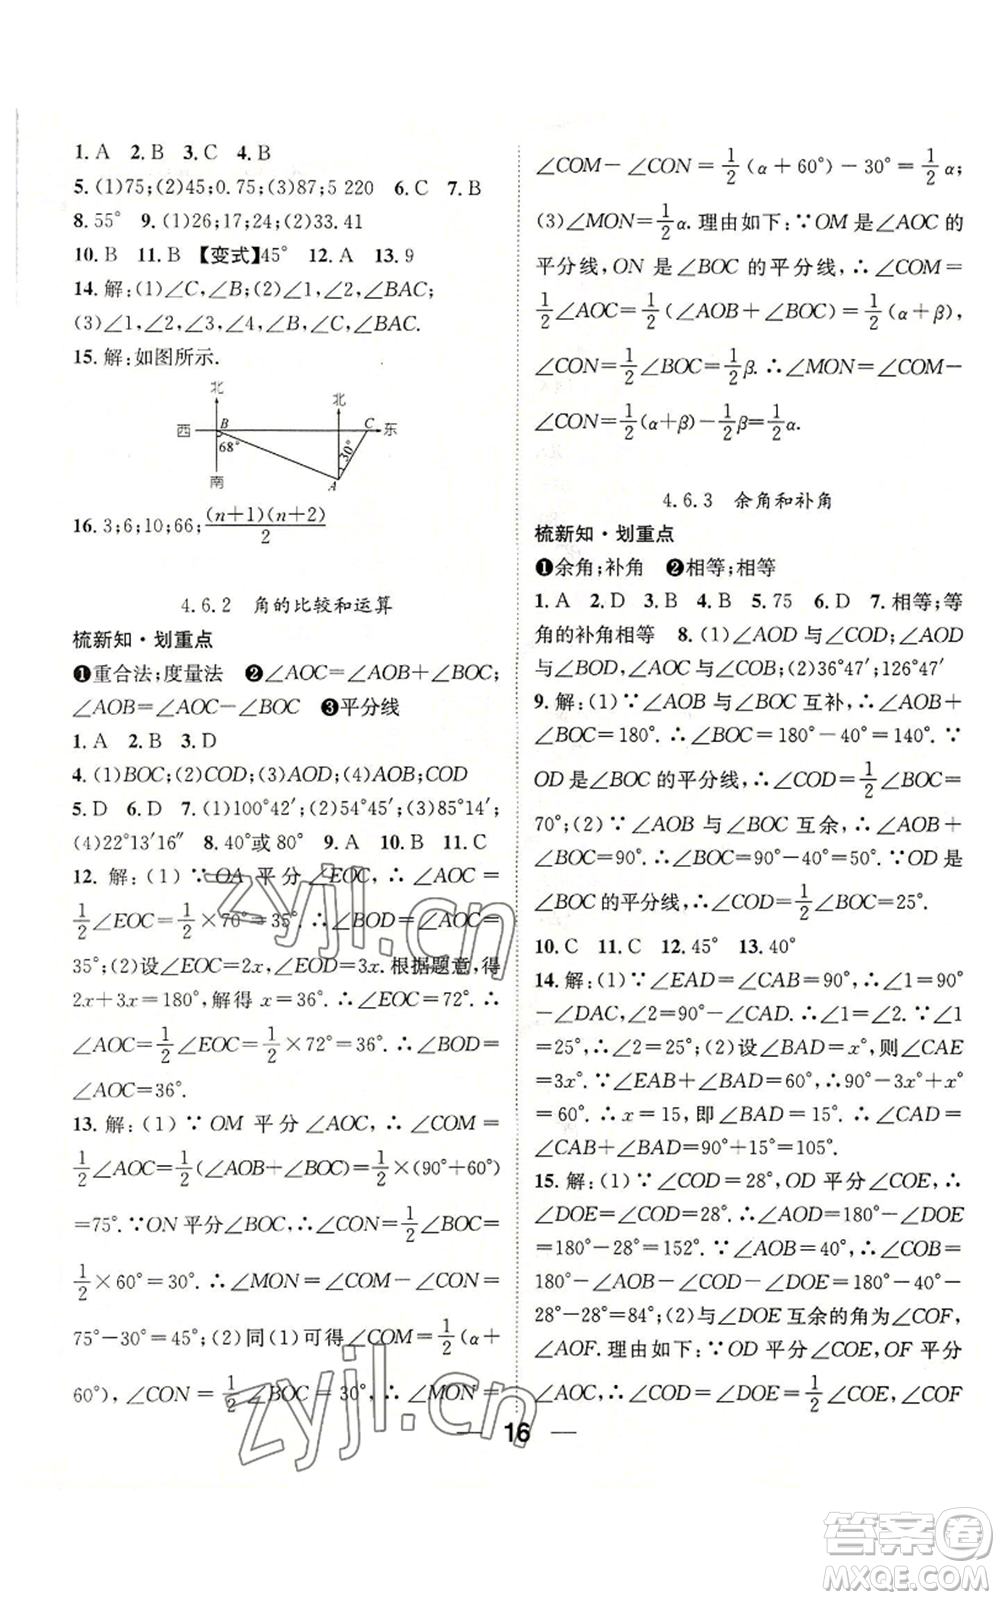 1. A 2. B 3. C 4. B
5. (1)75;(2)45;0.75;(3)87;5 220 6. C 7. B
8. 55° 9. (1)26;17;24;(2)33.41
10. B 11. B 【变式】45° 12. A 13. 9
14. 解:(1)∠C,∠B;(2)∠1,∠2,∠BAC;
(3)∠1,∠2,∠3,∠4,∠B,∠C,∠BAC.
15. 解:如图所示.
北
北
西 B C 东
68° 30°
南 A
16. 3;6;10;66;(n+1)(n+2)/2
4.6.2 角的比较和运算
梳新知·划重点
❶重合法;度量法 ❷∠AOC=∠AOB+∠BOC;
∠AOB=∠AOC-∠BOC ❸平分线
1. A 2. B 3. D
4. (1)BOC;(2)COD;(3)AOD;(4)AOB,COD
5. D 6. D 7. (1)100°42′;(2)54°45′;(3)85°14′;
(4)22°13′16″ 8. 40°或80° 9. A 10. B 11. C
12. 解:(1)∵OA 平分∠EOC,∴∠AOC=
1/2∠EOC=1/2×70°=35°.∴∠BOD=∠AOC=
35°;(2)设∠EOC=2x,∠EOD=3x.根据题意,得
2x+3x=180°,解得 x=36°.∴∠EOC=72°.∴
∠AOC=1/2∠EOC=1/2×72°=36°.∴∠BOD=
∠AOC=36°.
13. 解:(1)∵OM 平分∠AOC,∴∠COM=
1/2∠AOC=1/2(∠AOB+∠BOC)=1/2×(90°+60°)
=75°.∵ON平分∠BOC,∴∠CON=1/2∠BOC=
1/2×60°=30°.∴∠MON=∠COM-∠CON=
75°-30°=45°;(2)同(1)可得∠COM=1/2(α+
60°),∠CON=1/2∠BOC=30°,∴∠MON=
∠COM-∠CON=1/2(α+60°)-30°=1/2α;
(3)∠MON=1/2α.理由如下:∵OM是∠AOC的
平分线,ON是∠BOC的平分线,∴∠COM=
1/2∠AOC=1/2(∠AOB+∠BOC)=1/2(α+β),
∠CON=1/2∠BOC=1/2β.∴∠MON=∠COM-
∠CON=1/2(α+β)-1/2β=1/2α.
4.6.3 余角和补角
梳新知·划重点
❶余角;补角 ❷相等;相等
1. A 2. D 3. B 4. B 5. 75 6. D 7. 相等;等
角的补角相等 8. (1)∠AOD与∠COD,∠AOD
与∠BOD,∠AOC与∠COB;(2)36°47′;126°47′
9. 解:(1)∵∠AOB与∠BOC互补,∴∠AOB+
∠BOC=180°.∴∠BOC=180°-40°=140°.∵
OD是∠BOC的平分线,∴∠COD=1/2∠BOC=
70°;(2)∵∠AOB与∠BOC互余,∴∠AOB+
∠BOC=90°.∴∠BOC=90°-40°=50°.∵OD是
∠BOC的平分线,∴∠COD=1/2∠BOC=25°.
10. C 11. C 12. 45° 13. 40°
14. 解:(1)∵∠EAD=∠CAB=90°,∴∠1=90°
-∠DAC,∠2=90°-∠DAC.∴∠1=∠2.∵∠1
=25°,∴∠2=25°;(2)设∠BAD=x°,则∠CAE
=3x°.∵∠EAB+∠BAD=60°,∴90°-3x°+x°
=60°.∴x=15,即∠BAD=15°.∴∠CAD=
∠CAB+∠BAD=90°+15°=105°.
15. 解:(1)∵∠COD=28°,OD平分∠COE,∴
∠DOE=∠COD=28°.∴∠AOD=180°-∠DOE
=180°-28°=152°.∵∠AOB=40°,∴∠BOC=
180°-∠AOB-∠COD-∠DOE=180°-40°-
28°-28°=84°;(2)与∠DOE互余的角为∠COF,
∠AOF.理由如下:∵OD平分∠COE,OF平分
∠AOC,∴∠COD=∠DOE=1/2∠COE,∠COF
— 16 —
zyjl.cn
zyjl.cn
答案圈
MXQE.COM